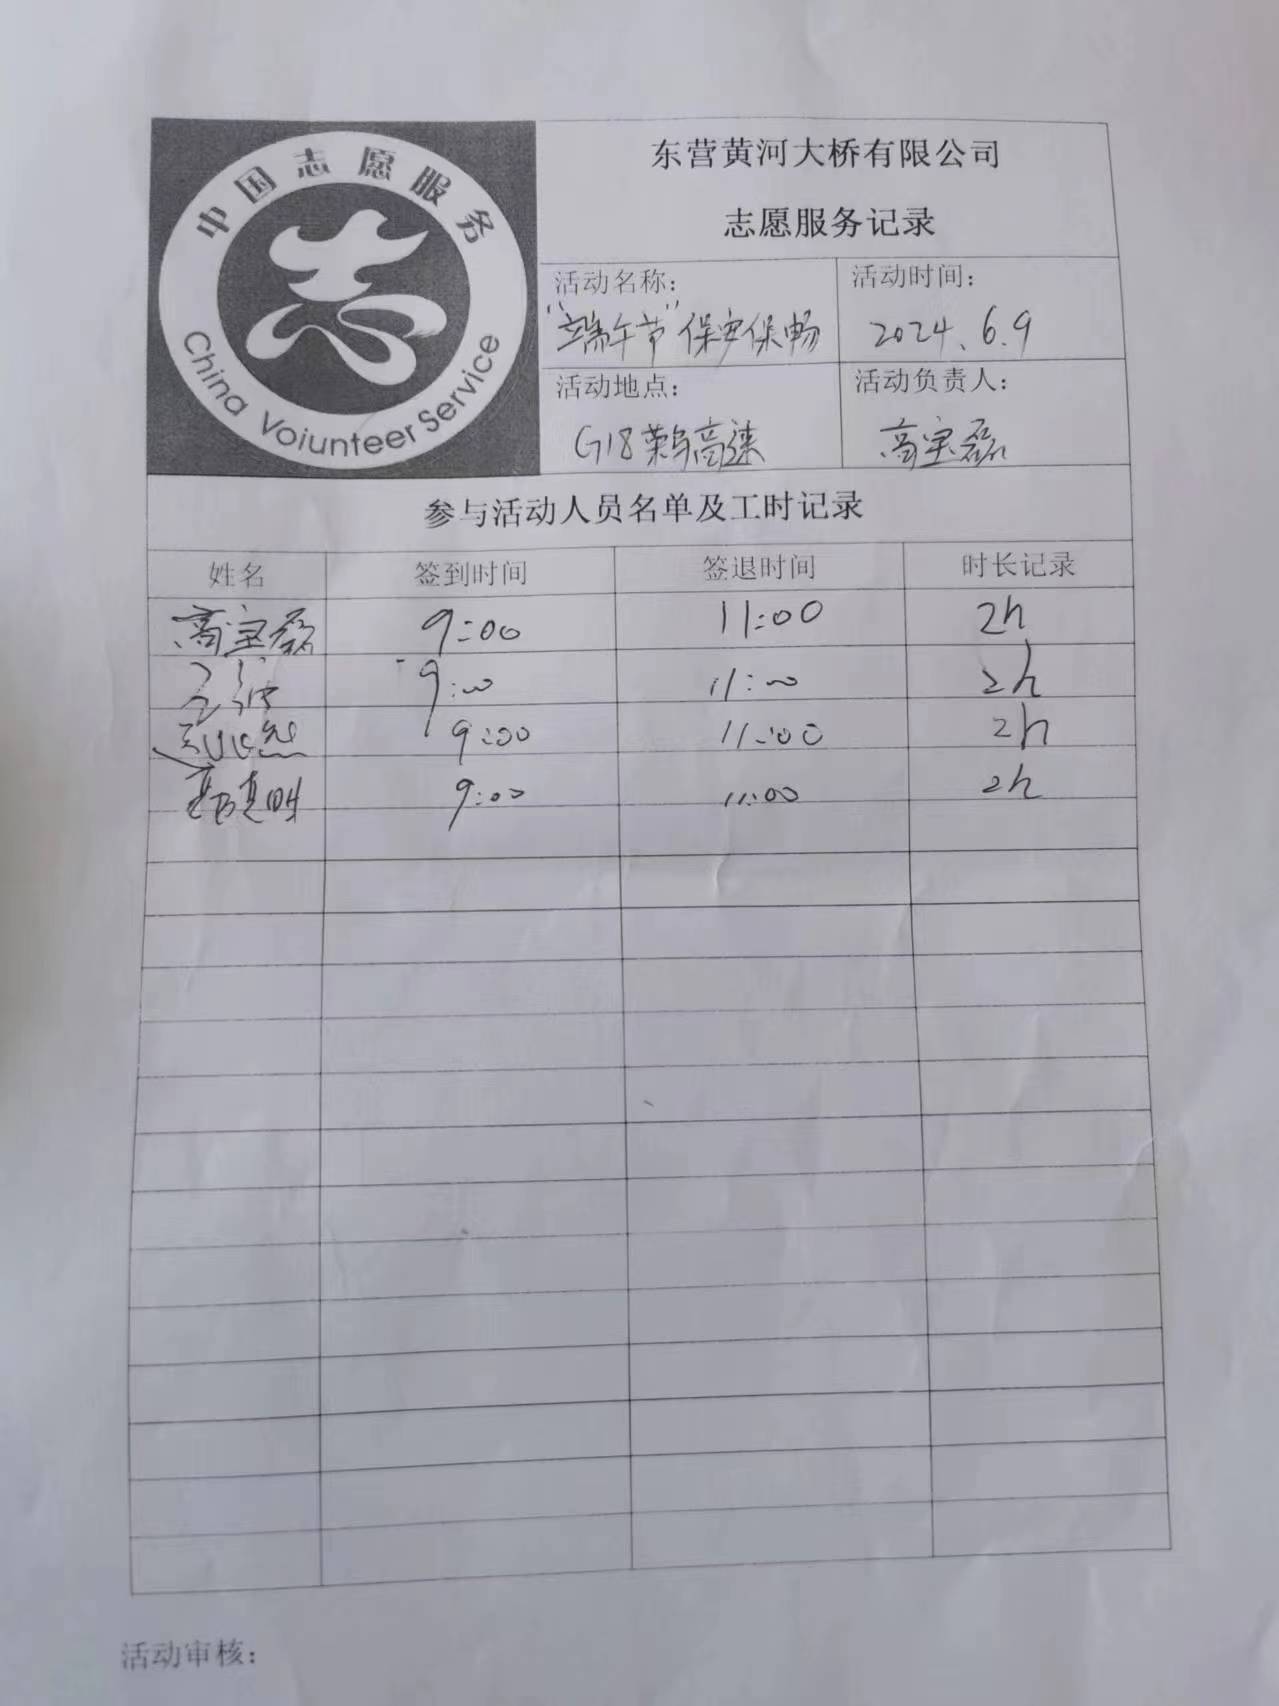 中国志愿服务
China Voiunteer Service
东营黄河大桥有限公司
志愿服务记录
活动名称：
"端午节"保安保畅
活动时间：
2024.6.9
活动地点：
G18荣乌高速
活动负责人：
高宝磊
参与活动人员名单及工时记录
姓名 签到时间 签退时间 时长记录
高宝磊 9:00 11:00 2h
9:00 11:00 2h
9:00 11:00 2h
9:00 11:00 2h
活动审核：